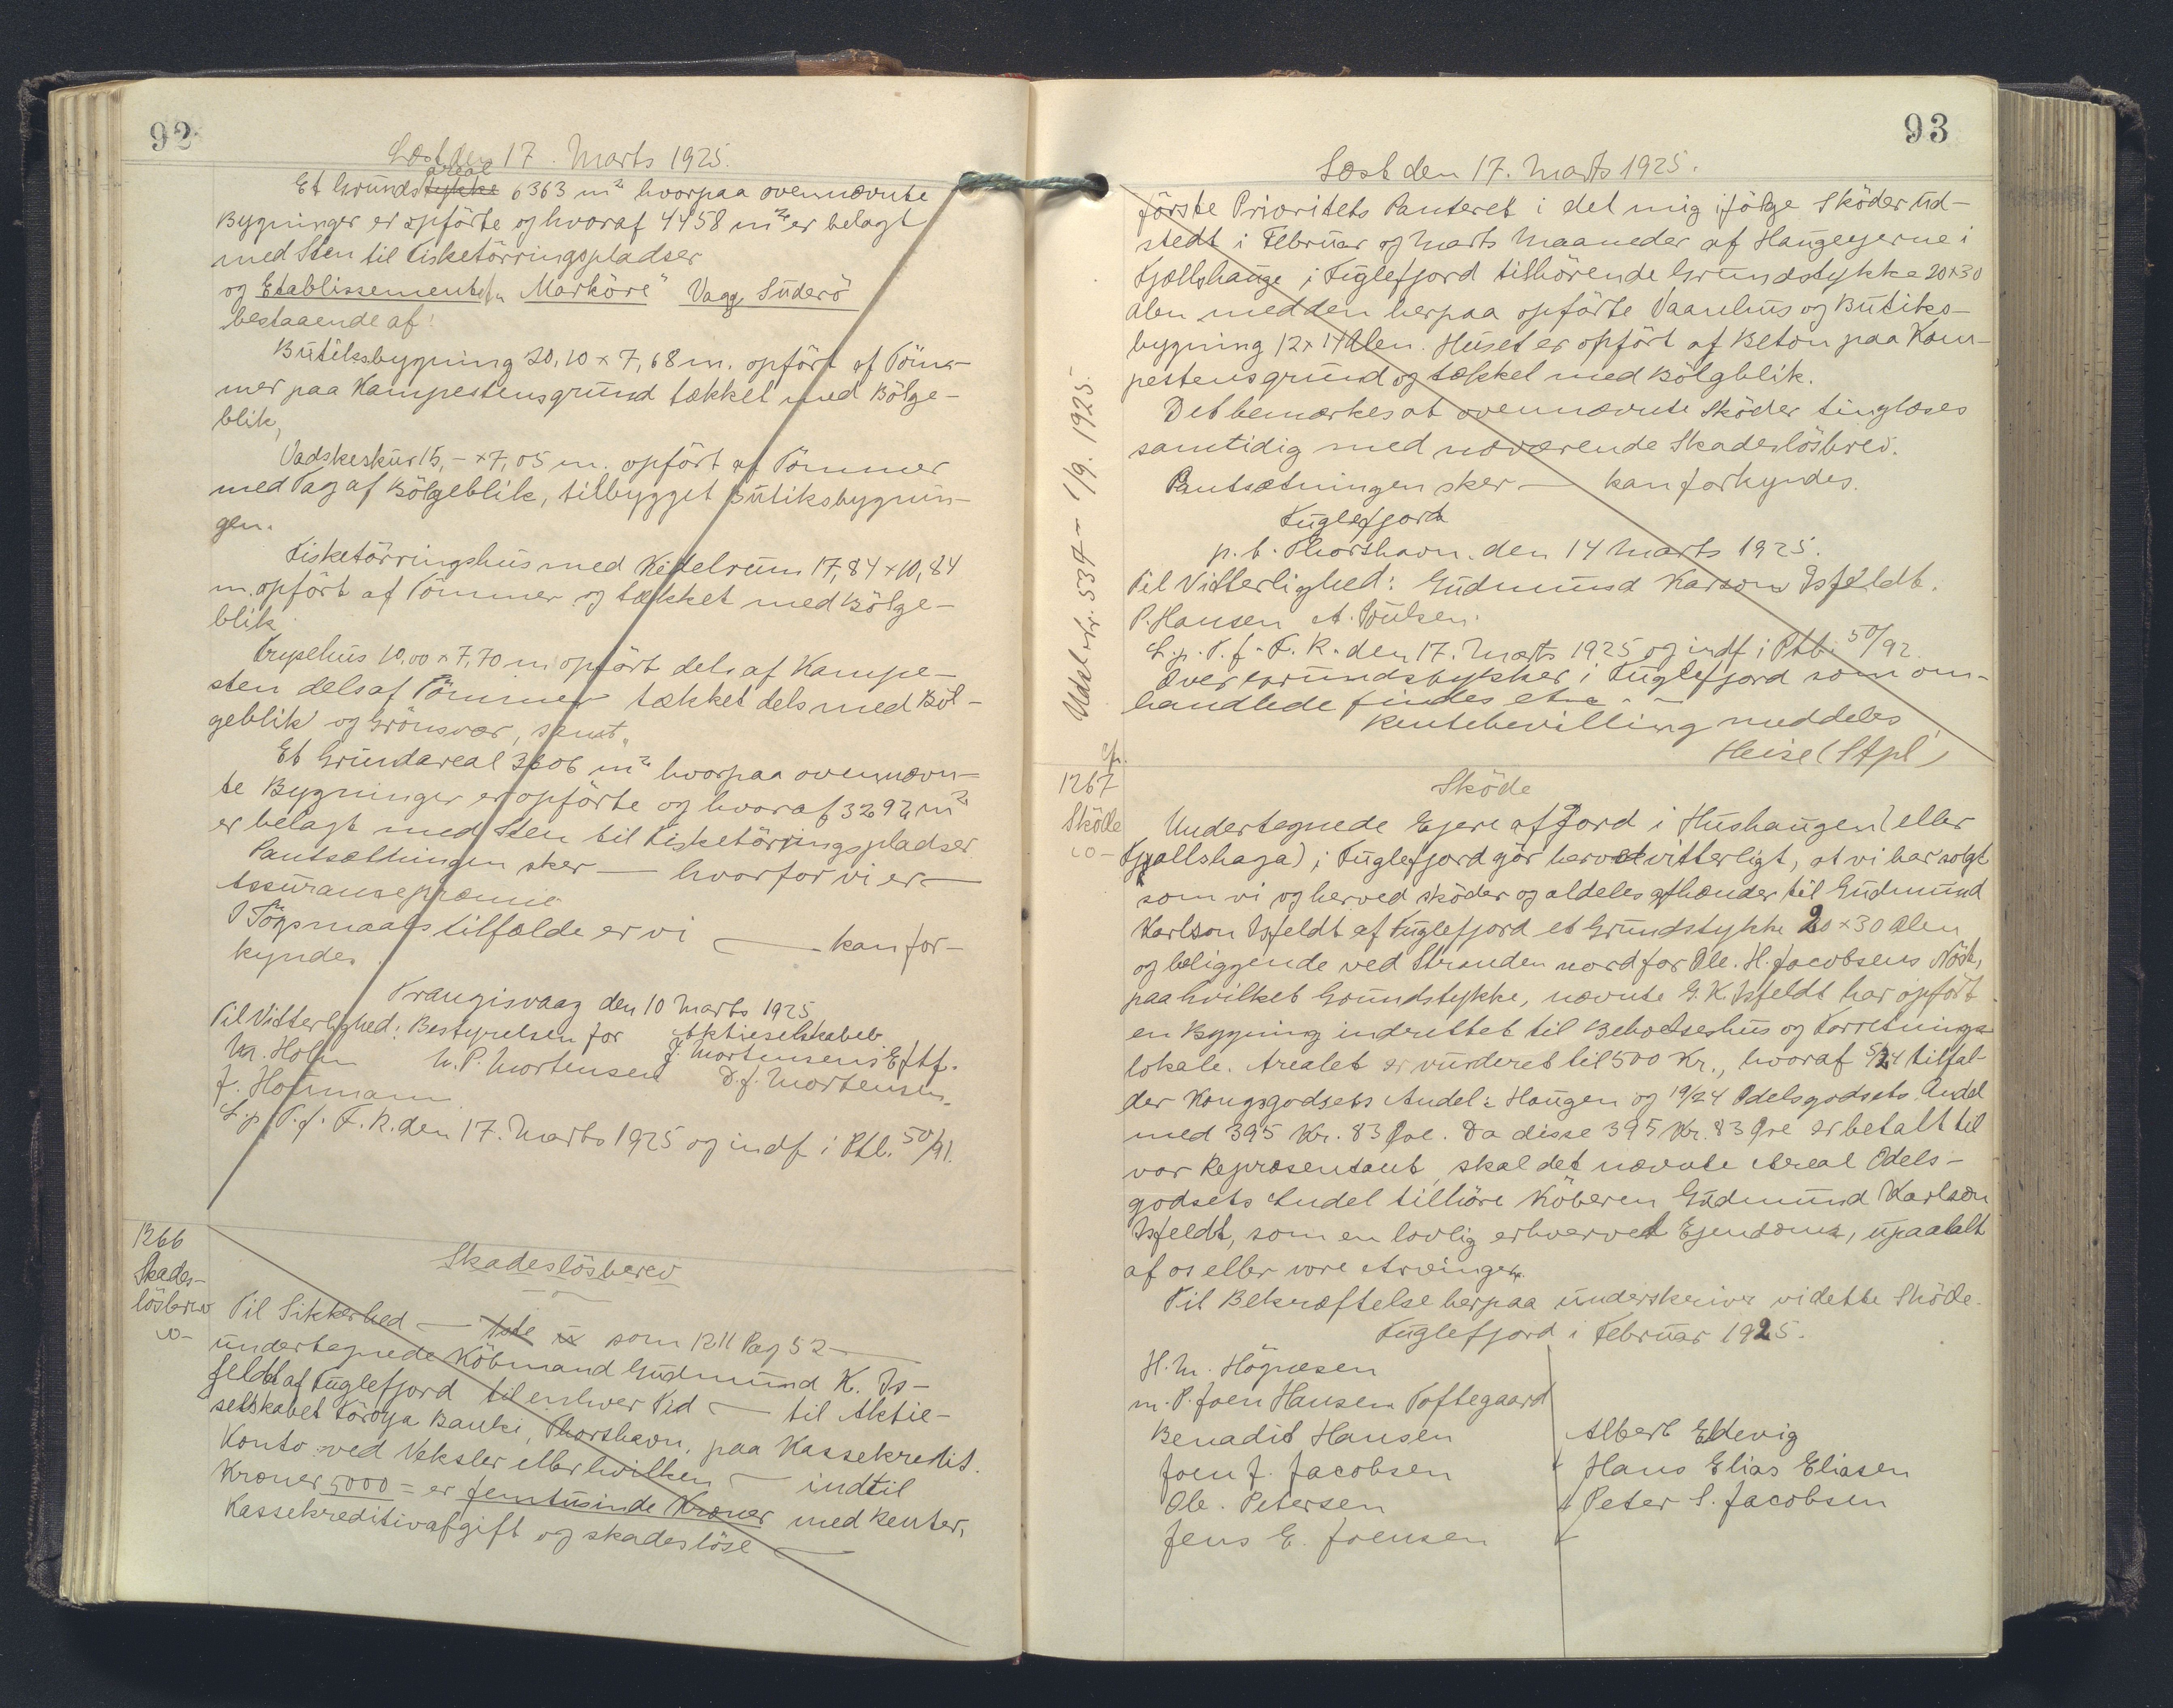 92
Læst den 17. Marts 1925.
areal
Et Grundstykke 6363 m² hvorpaa ovennævnte
Bygninger er opförte og hvoraf 4458 m² er belagt
med Sten til Fisketörringspladser
og Etablissementet „Marköre" Vaag Süderö
bestaaende af:
Bütiksbygning 20,10 x 7,68 m. opfört af Töm-
mer paa Kampestensgrund tækket med Bölge-
blik,
Vadskeskür 15,- x 7,05 m. opfört af Tömmer
med Tag af Bölgeblik, tilbygget Bütiksbygnin-
gen.
Fisketörringshüs med Kedelrüm 17,84 x 10,84
m. opfört af Tömmer og tækket med Bölge-
blik
Trypehüs 10,00 x 7,70 m opfört dels af Kampe-
sten dels af Tömmer tækket dels med Böl-
geblik og Grönsvær, samt
Et Gründareal 3606 m² hvorpaa ovennævn-
te Bygninger er opförte og hvoraf 3292 m²
er belagt med Sten til Fisketörringspladser
Pantsættningen sker — hvorfor vi er —
Assüransepræmie
I Sögsmaalstilfælde er vi — kan for-
kyndes
Trangisvaag den 10 Marts 1925
Til Vitterlighed: Bestyrelsen for Aktieselskabet
M. Holm M. P. Mortensen J. Mortensens Eftf.
J. Hofmann D. J. Mortensen.
L. p. T. f. F. R. den 17. Marts 1925 og indf i Ptb. 50/91.
1266
Skades-
lösbrev
Skadeslösbrev
Til Sikkerhed — som 1211 Pag 52 —
ündertegnede Köbmand Güdmünd K. Is-
feldt af Füglefjord til enhver Tid — til Aktie-
selskabet Föroya Banki, Thorshavn, paa Kassekredit.
Konto ved Veksler eller hvilken — indtil
Kroner 5000 = er femtüsinde Kroner med Renter,
Kassekreditivafgift og skadeslöse —
93
Læst den 17. Marts 1925.
förste Prioritets Panteret i det mig ifölge Sköder üd-
stedt i Februar og Marts Maaneder af Haügeejerne i
Fjallshauge i Füglefjord tilhörende Gründstykke 20x30
Alen med den herpaa opförte Vaanhüs og Bütiks-
bygning 12x14 Alen. Hüset er opfört af Beton paa Kam-
pestensgründ og tækket med Bölgblik.
Det bemærkes at ovennævnte Sköder tinglæses
samtidig med nærværende Skadeslösbrev.
Pantsætningen sker — kan forkyndes.
Füglefjord
p. t. Thorshavn. den 14 Marts 1925.
Til Vitterlighed: Güdmünd Karson Isfeldt.
P. Hansen A. Poülsen.
L. p. T. f. F. R. den 17. Marts 1925 og indf i Ptb. 50/92.
Over Gründstykker i Füglefjord som om-
handlede findes
Rentebevilling meddeles
Heise (Stpl)
Udsl. Nr. 534 - 1/9. 1925.
cfr.
1267
Sköde
Sköde
Undertegnede Ejere af Jord i Hüshaügen (eller
Fjallshaga) i Füglefjord gör herved vitterligt, at vi har solgt
som vi og herved sköder og aldeles afhænder til Güdmünd
Karlson Isfeldt af Füglefjord et Gründstykke 20x30 Alen
og beliggende ved Stranden nord for Ole. H. Jacobsens Nöst,
paa hvilket Gründstykke, nævnte G. K. Isfeldt har opfört
en Bygning indrettet til Beboelseshüs og Forretnings
lokale. Arealet er vürderet til 500 Kr., hvoraf 5/24 tilfal-
der Kongsgodsets Andel: Haügen og 19/24 Odelsgodsets Andel
med 395 Kr. 83 Öre. Da disse 395 Kr. 83 Öre er betalt til
vor Repræsentant, skal det nævnte Areal Odels-
godsets Andel tilhöre Köberen Güdmünd Karlson
Isfeldt, som en lovlig erhvervet Ejendom, üpaatalt
af os eller vore Arvinger.
Til Bekræftelse herpaa ünderskriver vi dette Sköde.
Füglefjord i Februar 1925.
H. M. Högnesen
m. P. Joen Hansen Toftegaard
Benadit Hansen
Joen J. Jacobsen
Ole. Petersen
Jens E. Joensen
Albert Eldevig
Hans Elias Eliasen
Peter S. Jacobsen